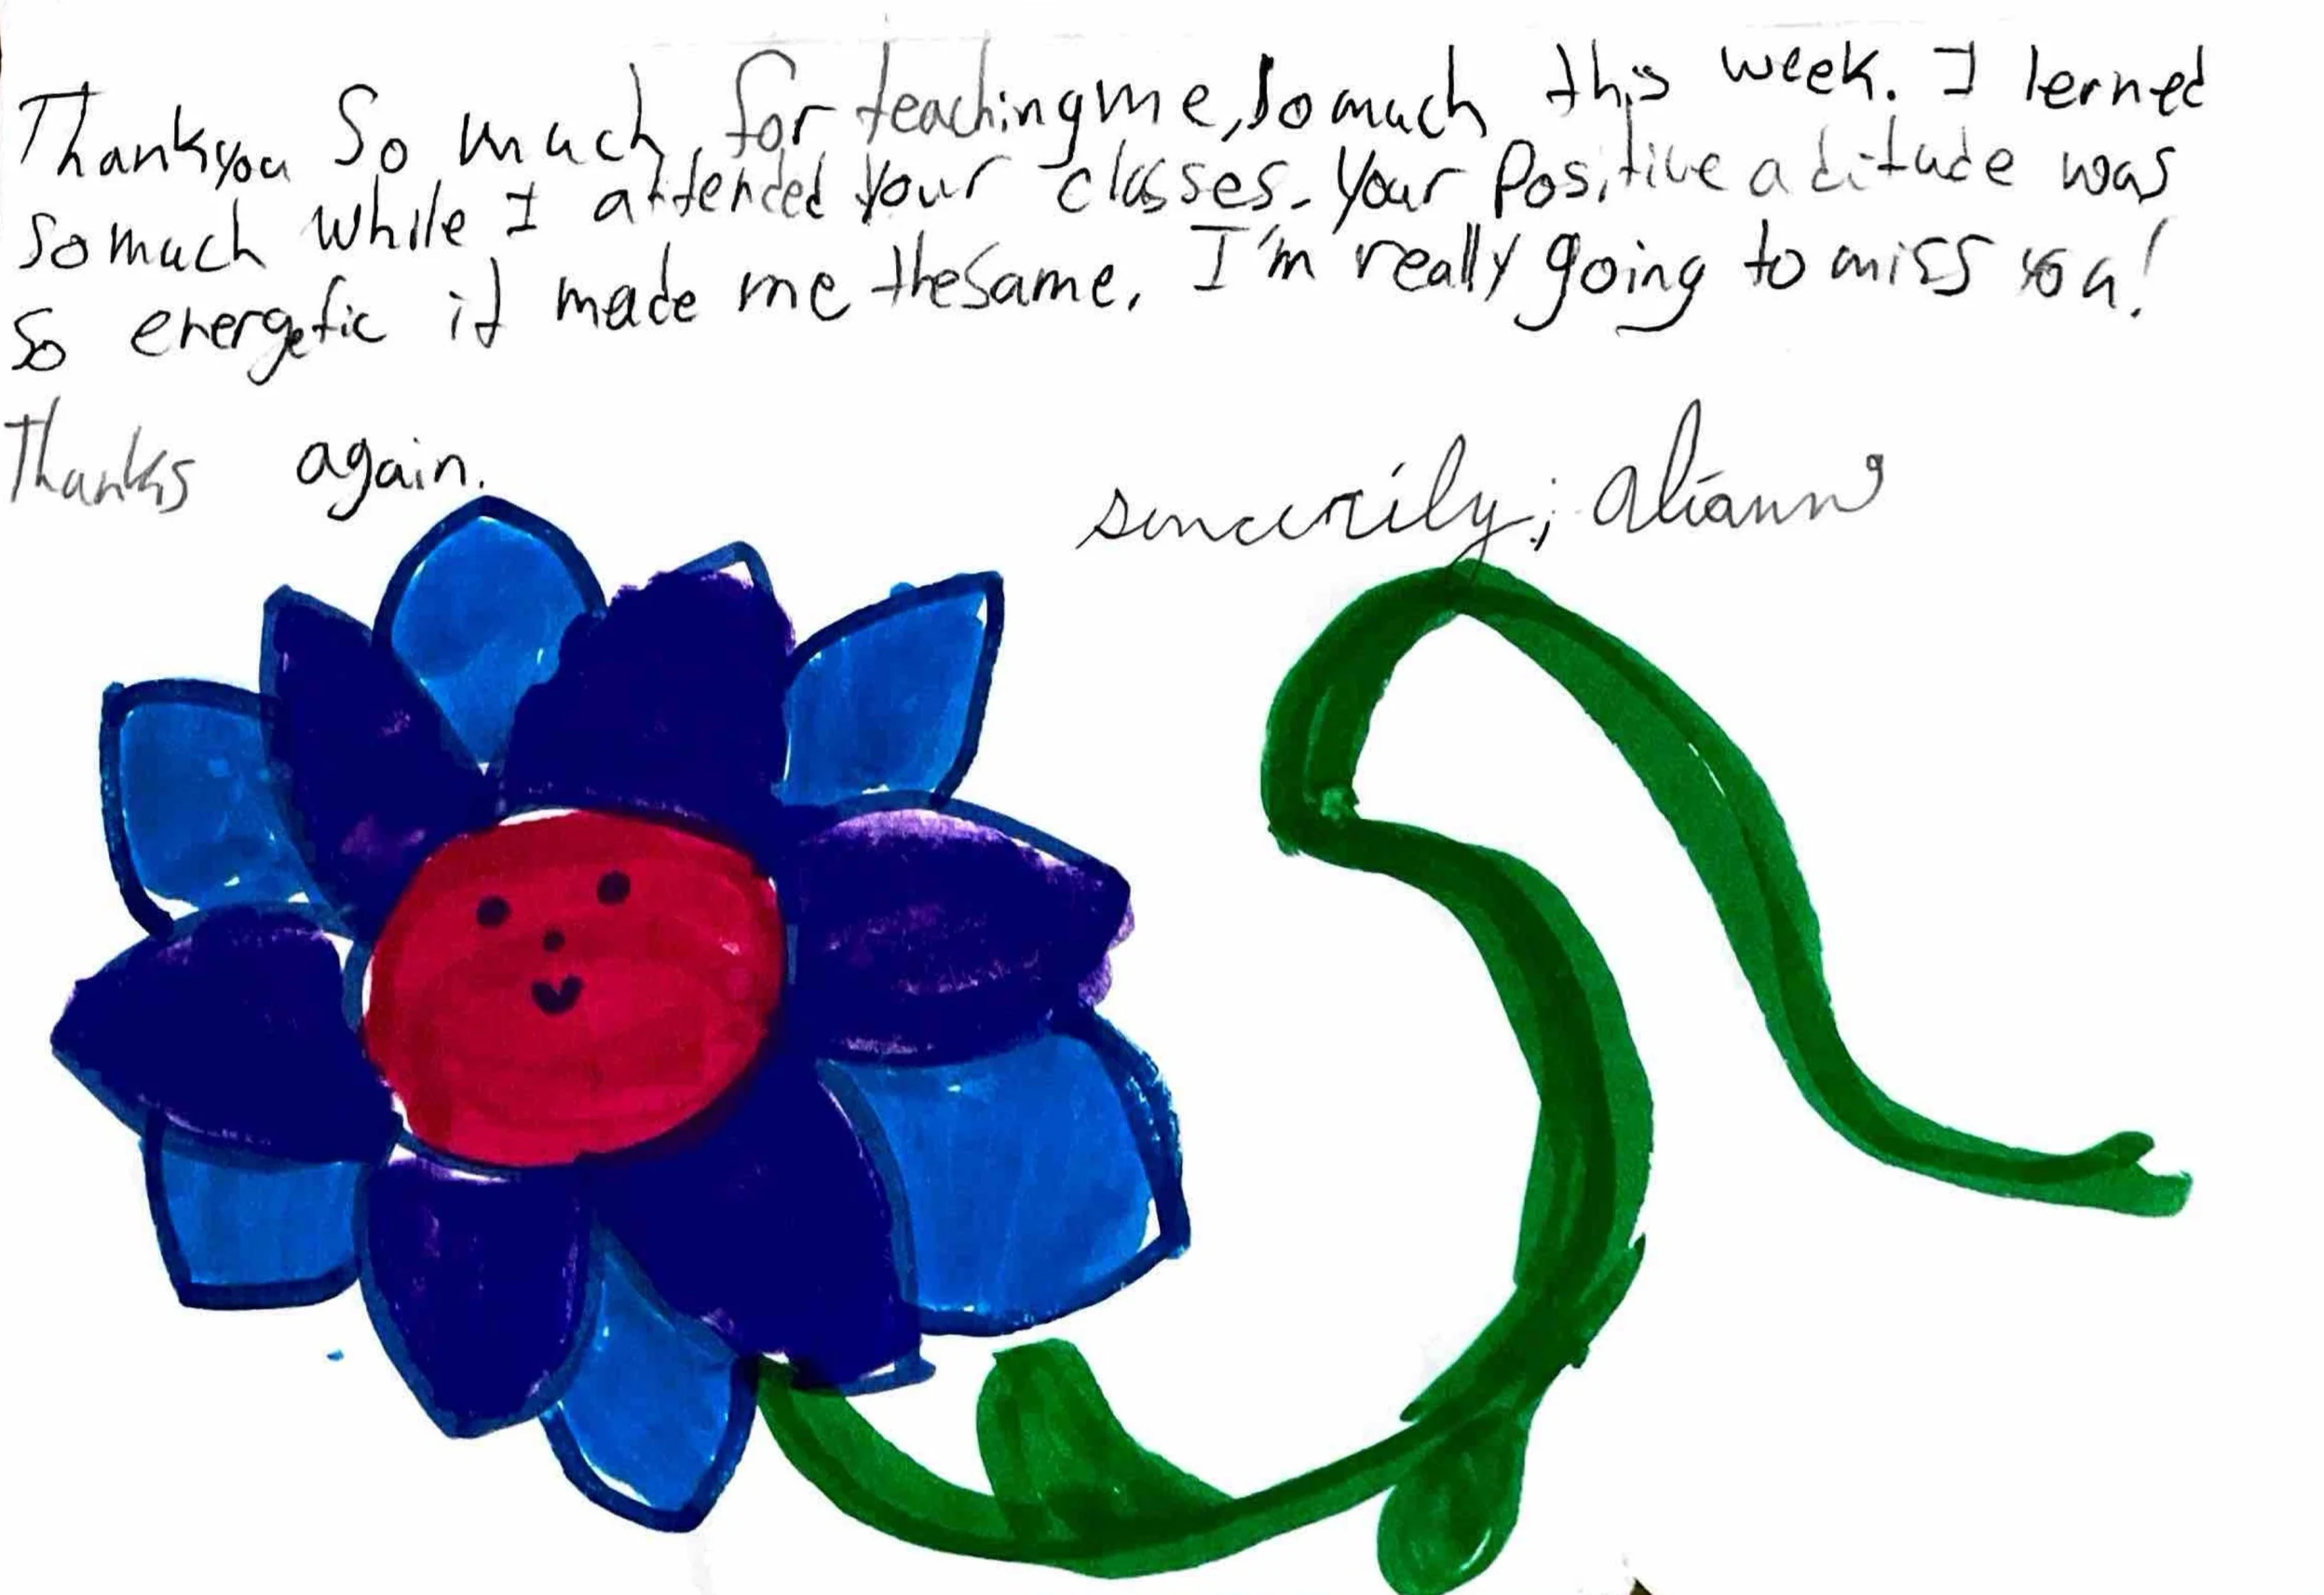 Thankyou So much for teaching me, so much this week. I lerned
so much while I attended your classes. Your Positive aditude was
so energetic it made me the same. I'm really going to miss you!
Thanks again.
sincerily; Aliann